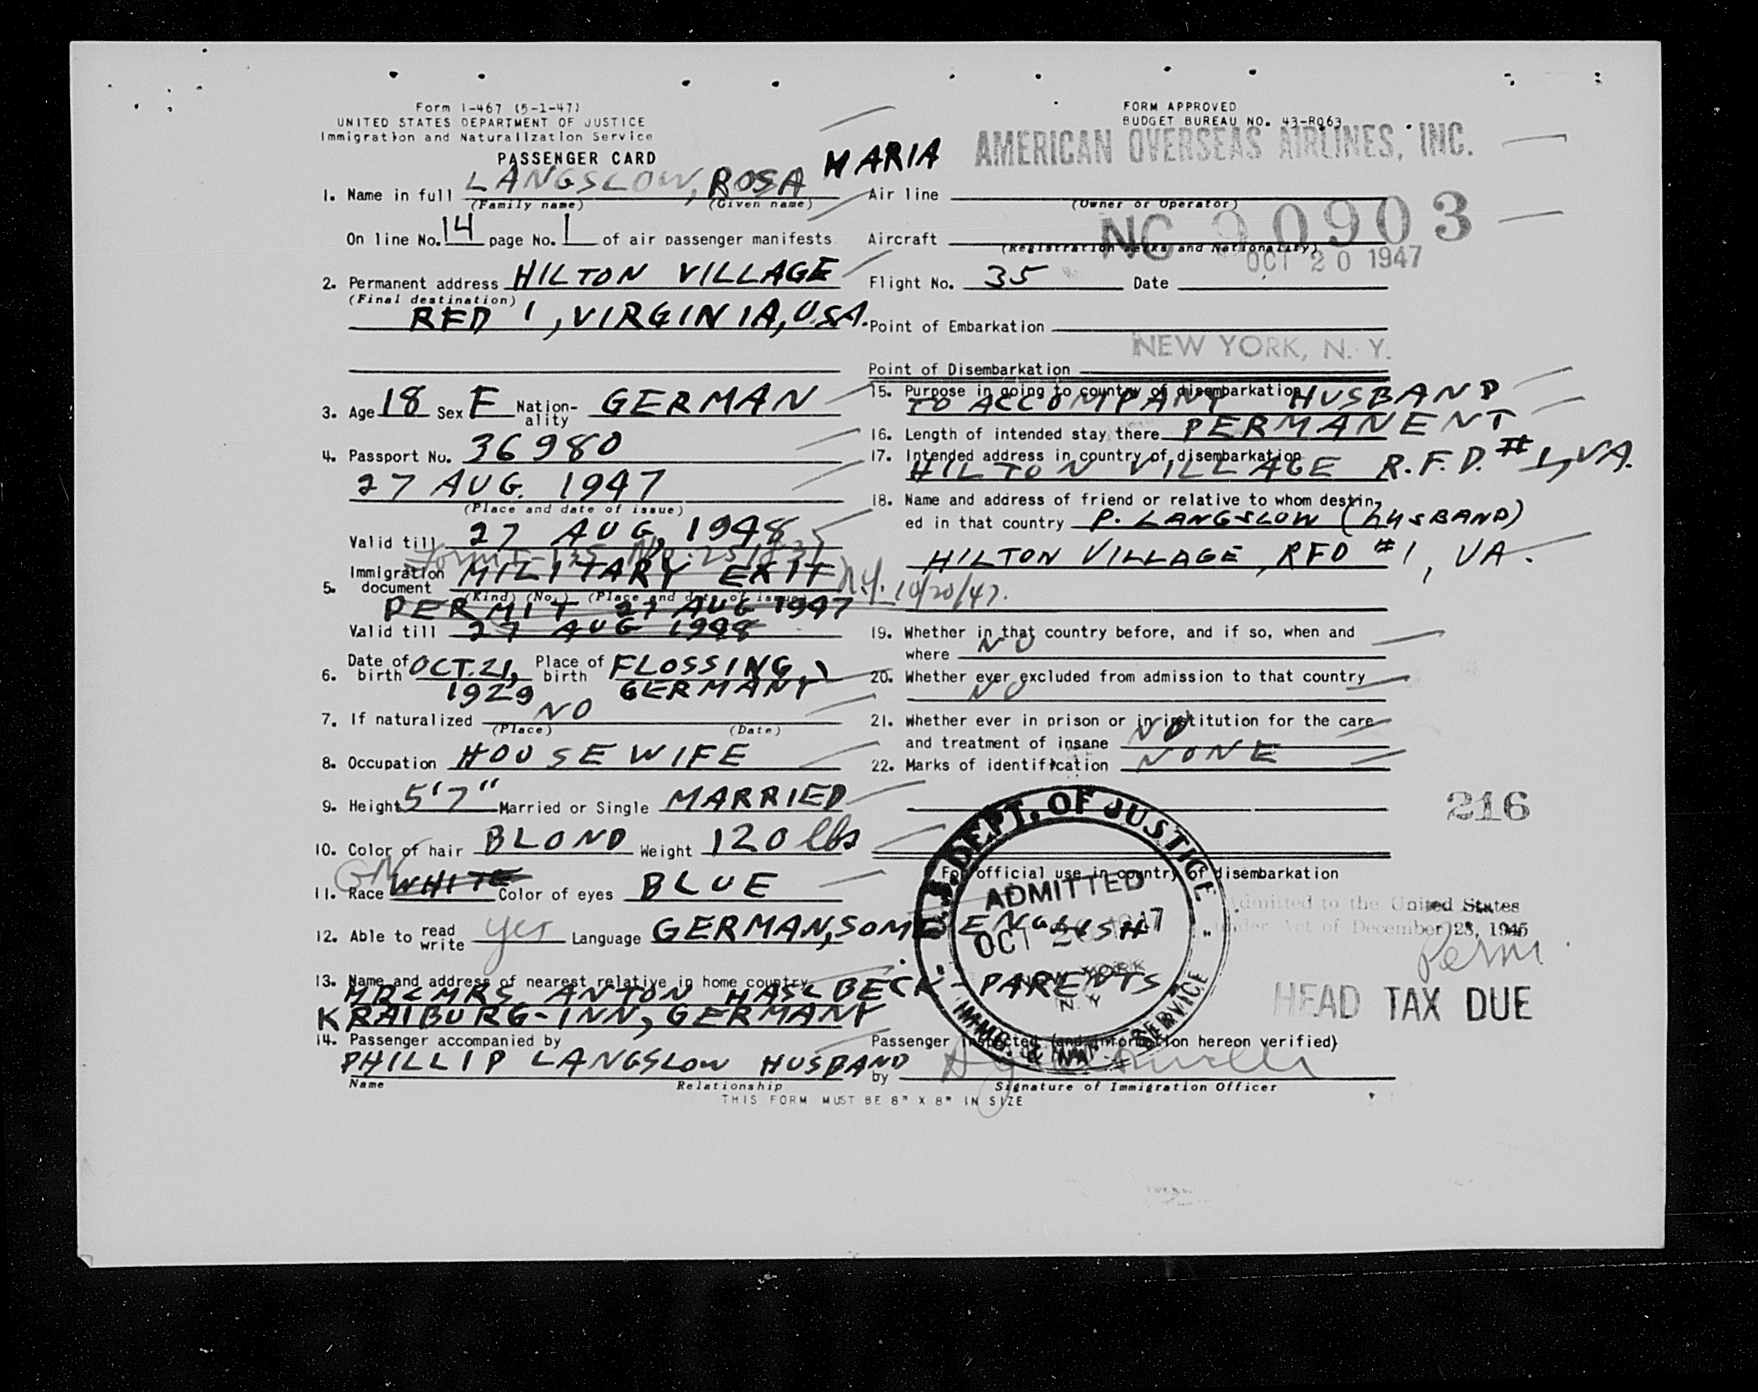 Form I-467 (5-1-47)
UNITED STATES DEPARTMENT OF JUSTICE
Immigration and Naturalization Service
PASSENGER CARD
1. Name in full LANGSLOW, ROSA MARIA
(Family name) (Given name)
On line No. 14 page No. 1 of air passenger manifests
2. Permanent address HILTON VILLAGE
(Final destination)
RFD 1, VIRGINIA, U.S.A.
3. Age 18 Sex F Nation-ality GERMAN
4. Passport No. 36980
27 AUG. 1947
(Place and date of issue)
Valid till 27 AUG, 1948
Immigration
5. document MILITARY EXIT
(Kind) (No.) (Place and date of issue)
PERMIT 27 AUG 1947
N.Y. 10/20/47.
Valid till 27 AUG 1948
6. Date of birth OCT. 21, 1929 Place of birth FLOSSING, GERMANY
7. If naturalized NO
(Place) (Date)
8. Occupation HOUSEWIFE
9. Height 5'7" Married or Single MARRIED
10. Color of hair BLOND Weight 120 lbs
11. Race WHITE Color of eyes BLUE
12. Able to read write yes Language GERMAN, SOME ENGLISH
13. Name and address of nearest relative in home country
MR & MRS ANTON HASLBECK - PARENTS
KRAIBURG-INN, GERMANY
14. Passenger accompanied by
PHILLIP LANGSLOW HUSBAND
Name Relationship
THIS FORM MUST BE 8" X 8" IN SIZE
FORM APPROVED
BUDGET BUREAU NO. 43-R063
AMERICAN OVERSEAS AIRLINES, INC.
Air line
(Owner or Operator)
Aircraft NC 90903
(Registration Marks and Nationality)
OCT 20 1947
Flight No. 35 Date
Point of Embarkation
NEW YORK, N. Y.
Point of Disembarkation
15. Purpose in going to country of disembarkation
TO ACCOMPANY HUSBAND
16. Length of intended stay there PERMANENT
17. Intended address in country of disembarkation
HILTON VILLAGE R.F.D. #1, VA.
18. Name and address of friend or relative to whom destin-
ed in that country P. LANGSLOW (HUSBAND)
HILTON VILLAGE, RFD #1, VA.
19. Whether in that country before, and if so, when and
where NO
20. Whether ever excluded from admission to that country
NO
21. Whether ever in prison or institution for the care
and treatment of insane NO
22. Marks of identification NONE
216
For official use in country of disembarkation
U.S. DEPT. OF JUSTICE
ADMITTED
OCT 20 1947
NEW YORK
N.Y.
IMMG. & NAT. SERVICE
Admitted to the United States
under Act of December 28, 1945
Perm
HEAD TAX DUE
Passenger inspected (and information hereon verified)
by
Signature of Immigration Officer